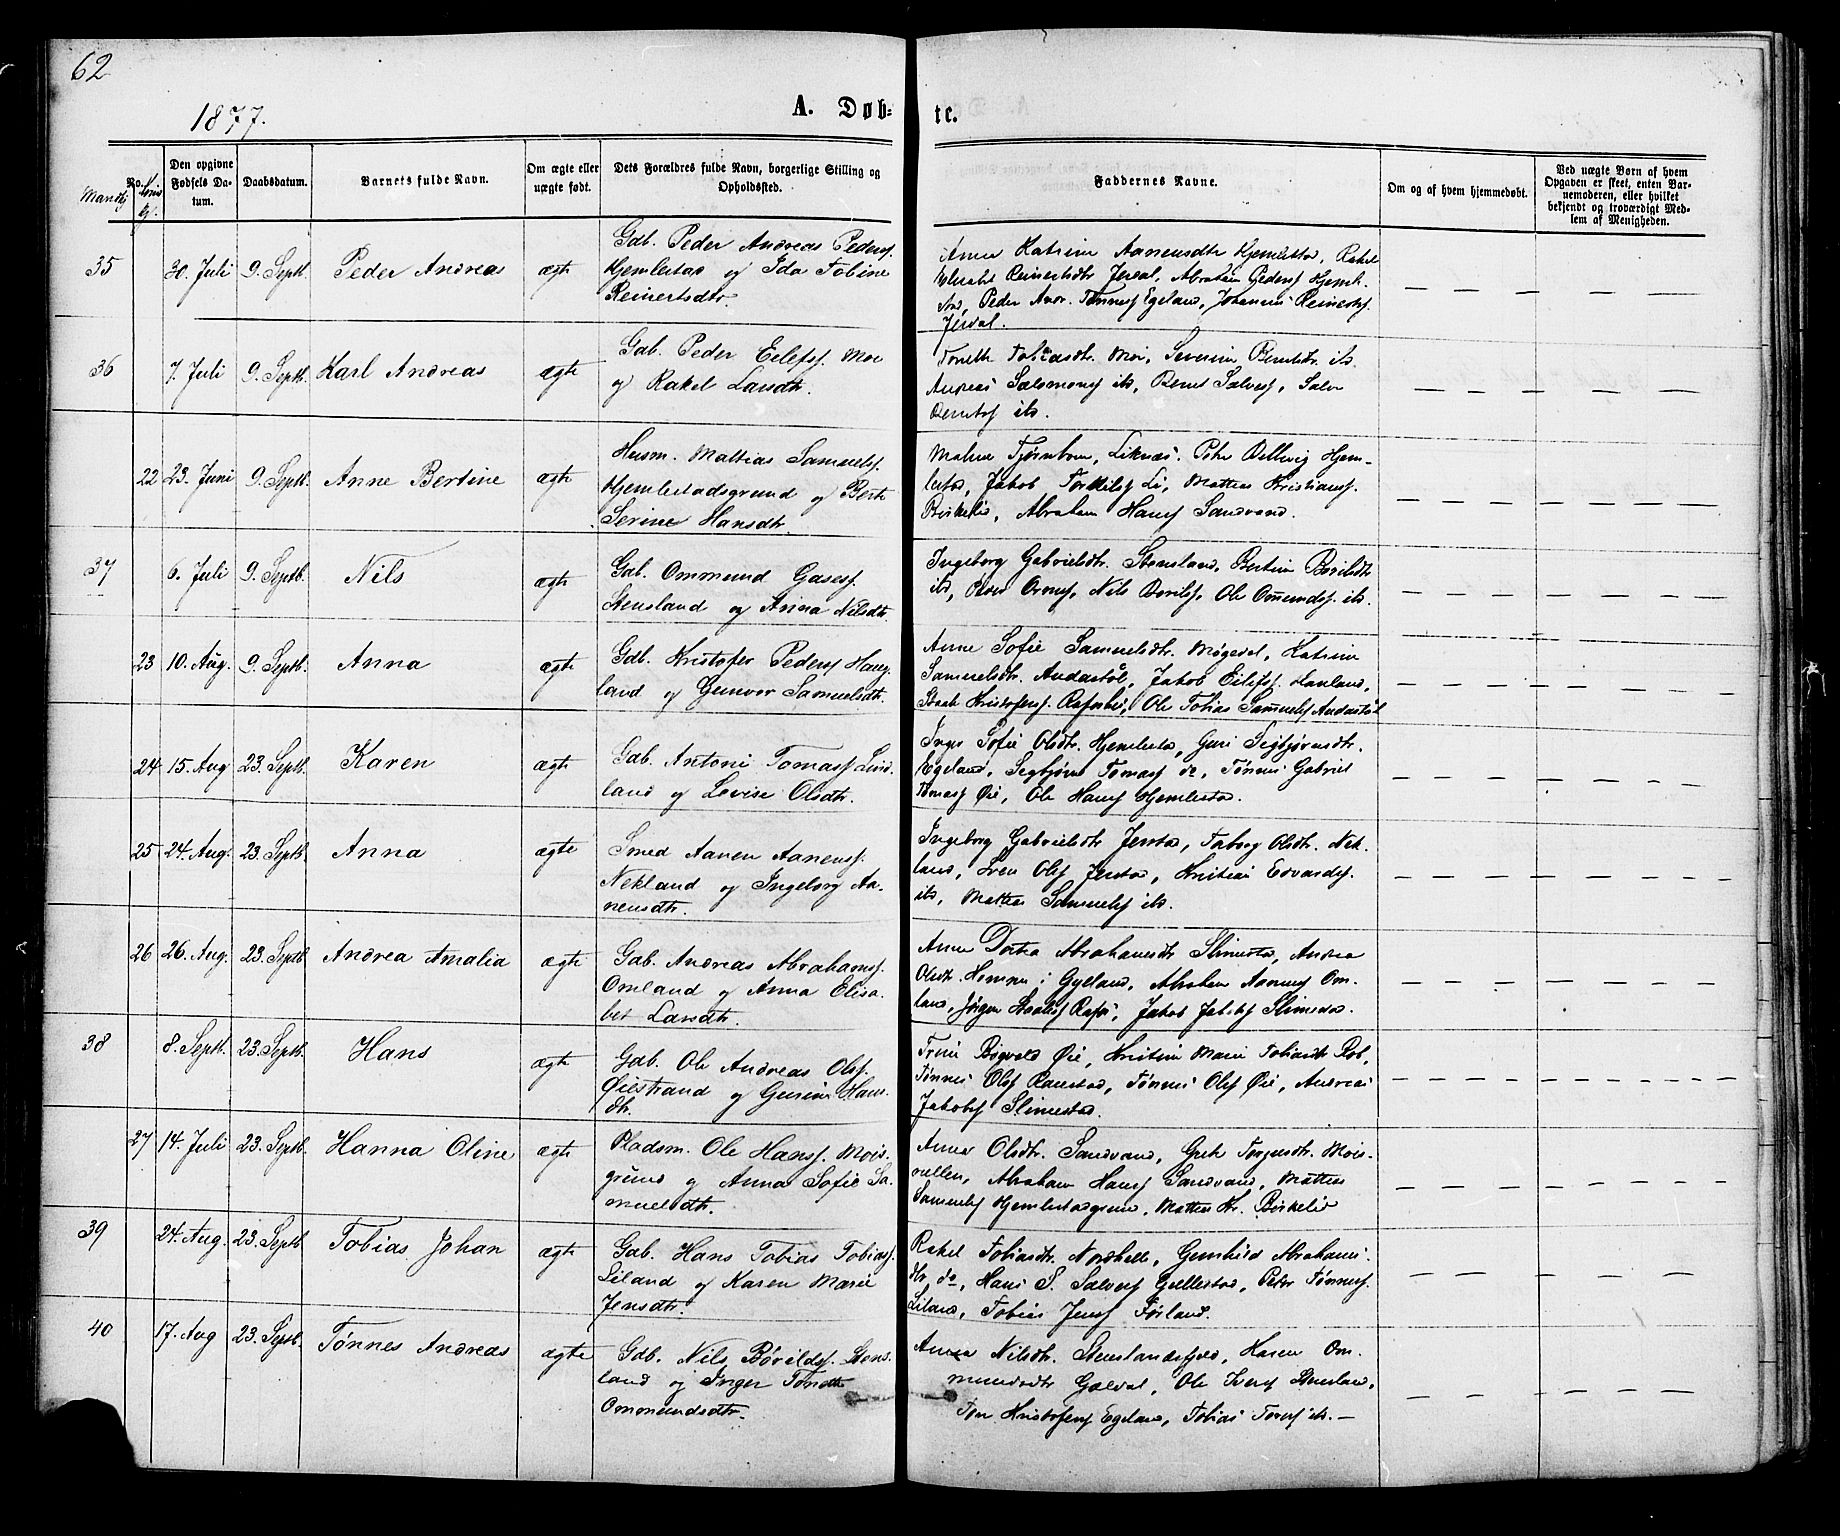 62
1877.
A. Døb-
te.
Mandkj
No.
Den opgivne Fødsels Da-tum.
Daabsdatum.
Barnets fulde Navn.
Om ægte eller uægte født.
Dets Forældres fulde Navn, borgerlige Stilling og Opholdssted.
Faddernes Navne.
Om og af hvem hjemmedøbt.
Ved uægte Børn af hvem Opgaven er skeet, enten Bar-nemoderen, eller hvilket bekjendt og troværdigt Med-lem af Menigheden.
35 30. Juli 9. Septb. Peder Andreas ægte
Gdb. Peder Andreas Peders.
Hjemlestad og Ida Tobine
Reinertsdtr.
Anna Katrine Aanensdtr Hjemlestad, Rakel
Elisabet Reinertsdtr Jerdal, Abraham Peders Hjemle-
stad, Peder Andr. Tønnes Egeland, Johannes Reinerts.
Jerdal.
36 7. Juli 9. Septb. Karl Andreas ægte
Gdb. Peder Eilefss. Moi
og Rakel Larsdtr.
Tobiasdtr. Moi, Severine Berntsdtr. ib.
Andreas Salomons ib, Bernt Salves, Salve
Berntss ib.
22 23. Juni 9. Septb. Anne Bertine ægte
Husm. Mattias Samuelss.
Hjemlestadsgrund og Berte
Serine Hansdtr.
Malene Tjørnhom, Liknæs. Peter Hjem-
lestad, Jakob Torkilss Li, Mattias Kristianss.
Birkelid, Abraham Hanss Sandvand.
37 6. Juli 9. Septb. Nils ægte
Gdb. Ommund Gases.
Stensland og Anna Nilsdtr.
Ingeborg Gabrielsdtr. Stensland, Bertine Børildsdtr
ib, Nils Børilds, Ole Ommunds. ib.
23 10. Aug. 9. Septb. Anna ægte
Gdb. Kristofer Peders Haug-
land og Gunvor Samuelsdtr.
Anne Sofie Samuelsdtr. Møgedal, Katrine
Samuelsdtr. Andastøl, Jakob Eilefss. Hauland,
Kristofers. Rafos, Ole Tobias Samuels Andastøl
24 15. Aug 23. Septb. Karen ægte
Gdb. Antoni Tomass Lind-
land og Lovise Olsdtr.
Inger Sofie Olsdtr. Hjemlestad, Guri Segbjørnsdtr.
Egeland, Segbjørn Tomass do, Tønnes Gabriel
Tomass Øie, Ole Hanss Hjemlestad.
25 24. Aug. 23. Septb. Anna ægte
Smed Aanen Aanenss.
Nekland og Ingeborg Aa-
nensdtr.
Ingeborg Gabrielsdtr Jerstad, Taborg Olsdtr. Nek-
land, Sven Olss Jerstad, Kristian Edvardss.
ib, Mattias Samuelss ib.
26 26. Aug. 23. Septb Andrea Amalia ægte
Gdb. Andreas Abrahamss.
Omland og Anna Elisa-
bet Larsdtr.
Anna Dortea Abrahamsdtr Slimestad, Andrea
Olsdtr. Homme i Gylland, Abraham Aanens Om-
land, Jørgen Rafos, Jakob Jakobs Slimestad.
38 8. Septb. 23. Septb. Hans ægte
Gdb. Ole Andreas Olss.
Øiestrand og Gurine Hans-
dtr.
Trine Øie, Kristine Marie Tobiasdtr Rob,
Tønnes Olss Ramstad, Tønnes Olss Øie, Andreas
Jakobss Slimestad.
27 14. Juli 23. Septb. Hanna Oline ægte
Pladsm. Ole Hanss. Mois-
grund og Anna Sofie Sa-
muelsdtr.
Anna Olsdtr. Sandvand, Torjusdtr. Mois-
vellen, Abraham Hanss Sandvand, Mattias
Samuelss Hjemlestadgrund, Mattias Kr. Birkelid
39 24. Aug. 23. Septb. Tobias Johan ægte
Gdb. Hans Tobias Tobiass.
Liland og Karen Marie
Jensdtr.
Rakel Tobiasdtr. Nordhelle, Gunhild Abrahams-
dtr, do, Hans S. Salves Gullestad, Peter Tønness.
Liland, Tobias Jenss Førland.
40 17. Aug 23. Septb. Tønnes Andreas ægte
Gdb. Nils Børildss. Stens-
land og Inger Tonette
Ommundsdtr.
Anna Nilsdtr. Stenslandsfjeld, Karen Om-
mundsdtr Galdal, Ole Iverss Stensland,
Kristofers Egeland, Tobias Tores ib. —